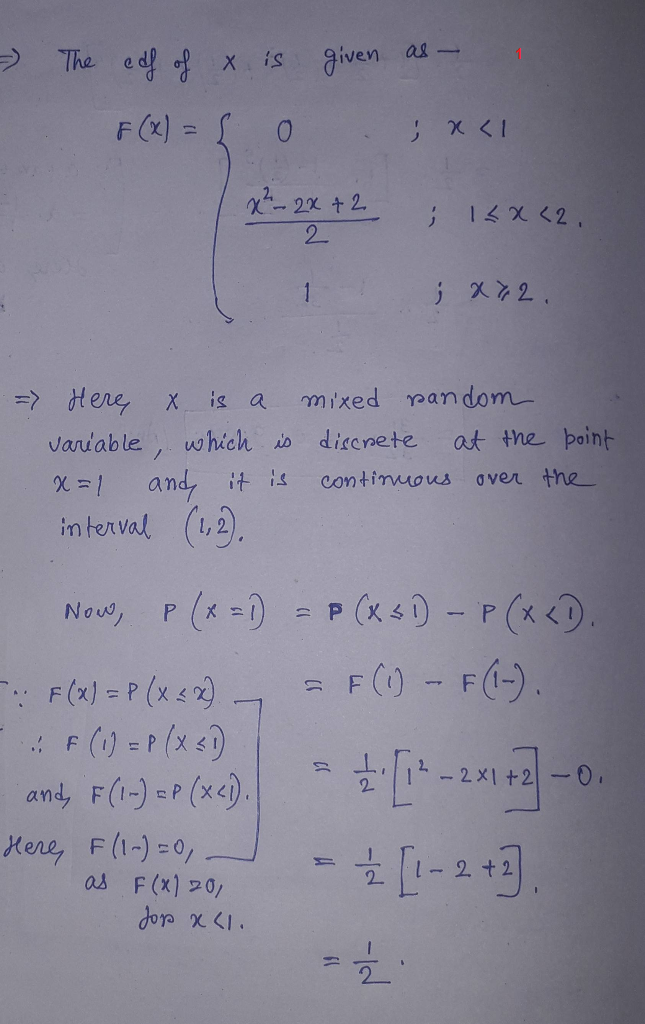 => The cdf of X is given as — 1
F(x) = { 0 ; x < 1
x² - 2x + 2 / 2 ; 1 ≤ x < 2.
1 ; x ≥ 2.
=> Here, X is a mixed random
variable, which is discrete at the point
x = 1 and, it is continuous over the
interval (1,2).
Now, P(X = 1) = P(X ≤ 1) - P(X < 1).
∵ F(x) = P(X ≤ x)
= F(1) - F(1-).
∴ F(1) = P(X ≤ 1)
and, F(1-) = P(X < 1).
= 1/2 · [1² - 2×1 + 2] - 0.
Here, F(1-) = 0,
as F(x) = 0,
for x < 1.
= 1/2 [1 - 2 + 2].
= 1/2 .